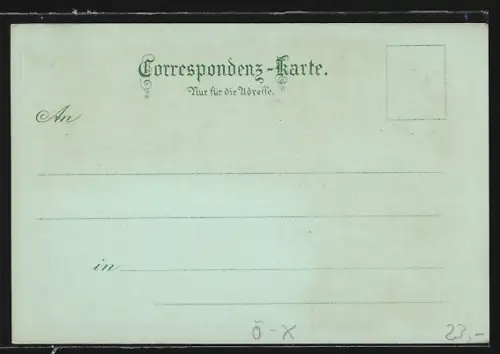 Correspondenz-Karte.
Nur für die Adresse.
An
in
Ö-X 23,-